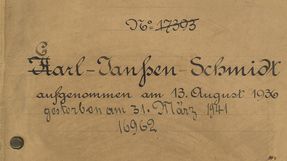 No 17393
Carl-Janßen-Schmidt
aufgenommen am 13. August 1936
gestorben am 31. März 1941
16962